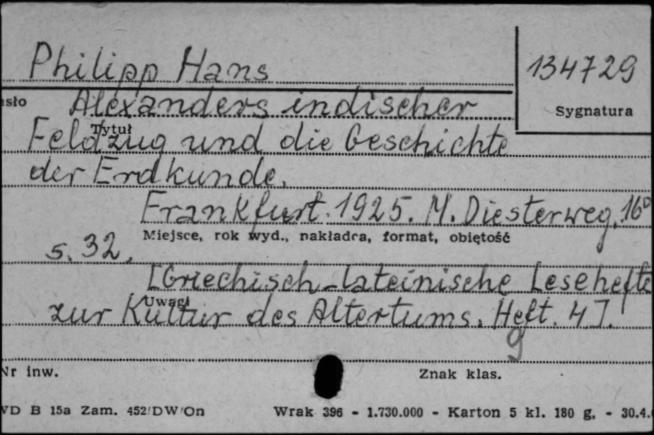 Philipp Hans
134729
sło Alexanders indischer
Sygnatura
Tytuł
Feldzug und die Geschichte
der Erdkunde.
Frankfurt. 1925. M. Diesterweg. 16°
Miejsce, rok wyd., nakładca, format, objętość
s. 32.
[Griechisch-lateinische Lesehefte
Uwagi
zur Kultur des Altertums. Heft. 4].
g
Nr inw.
Znak klas.
WD B 15a Zam. 452/DW/On Wrak 396 - 1.730.000 - Karton 5 kl. 180 g. - 30.4.